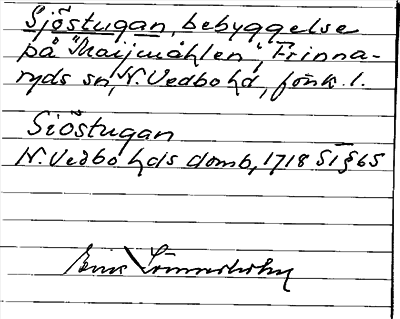 Sjöstugan, bebyggelse
på "Maijmåhlen", Frinna-
ryds sn, N. Vedbo hd, förk. l.
Siöstugan
N. Vedbo hds domb, 1718 St § 65